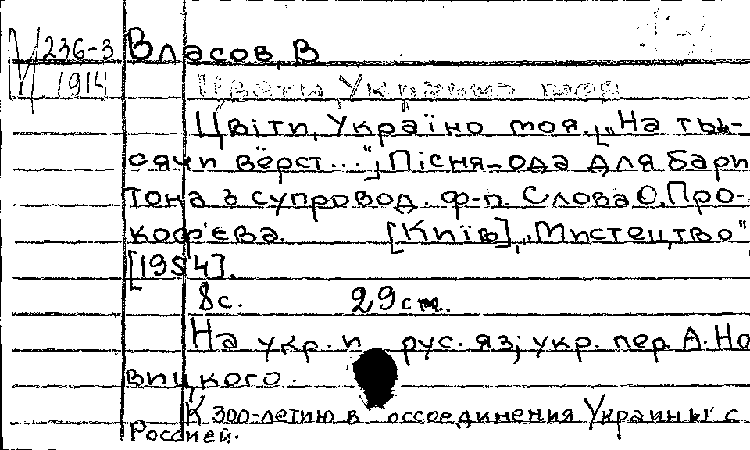 Ц 236-3 Власов, В
1914 Цвети, Украина моя
Цвіти, Україно моя. [„На ты-
сячи вёрст..."]. Пісня-ода для бари
тона з супровод. ф-п. Слова О. Про-
коф'єва. [Київ], „Мистецтво"
[1954].
8с. 29 см.
На укр. и рус. яз; укр. пер. А. Но
вицкого.
К 300-летию в оссоединения Украины с
Россией.